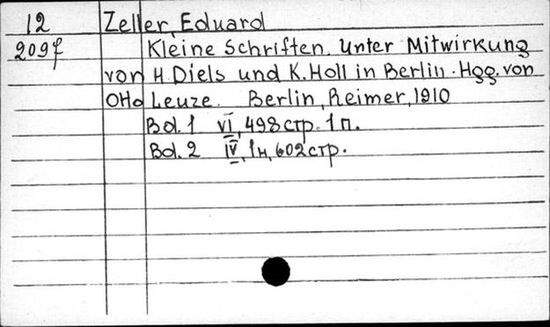 12 Zeller, Eduard
209f Kleine Schriften. Unter Mitwirkung
von H. Diels und K. Holl in Berlin. Hgg. von
Otto Leuze. Berlin, Reimer, 1910
Bd. 1 VI, 498 стр. 1 п.
Bd. 2 IV, 1н, 602 стр.